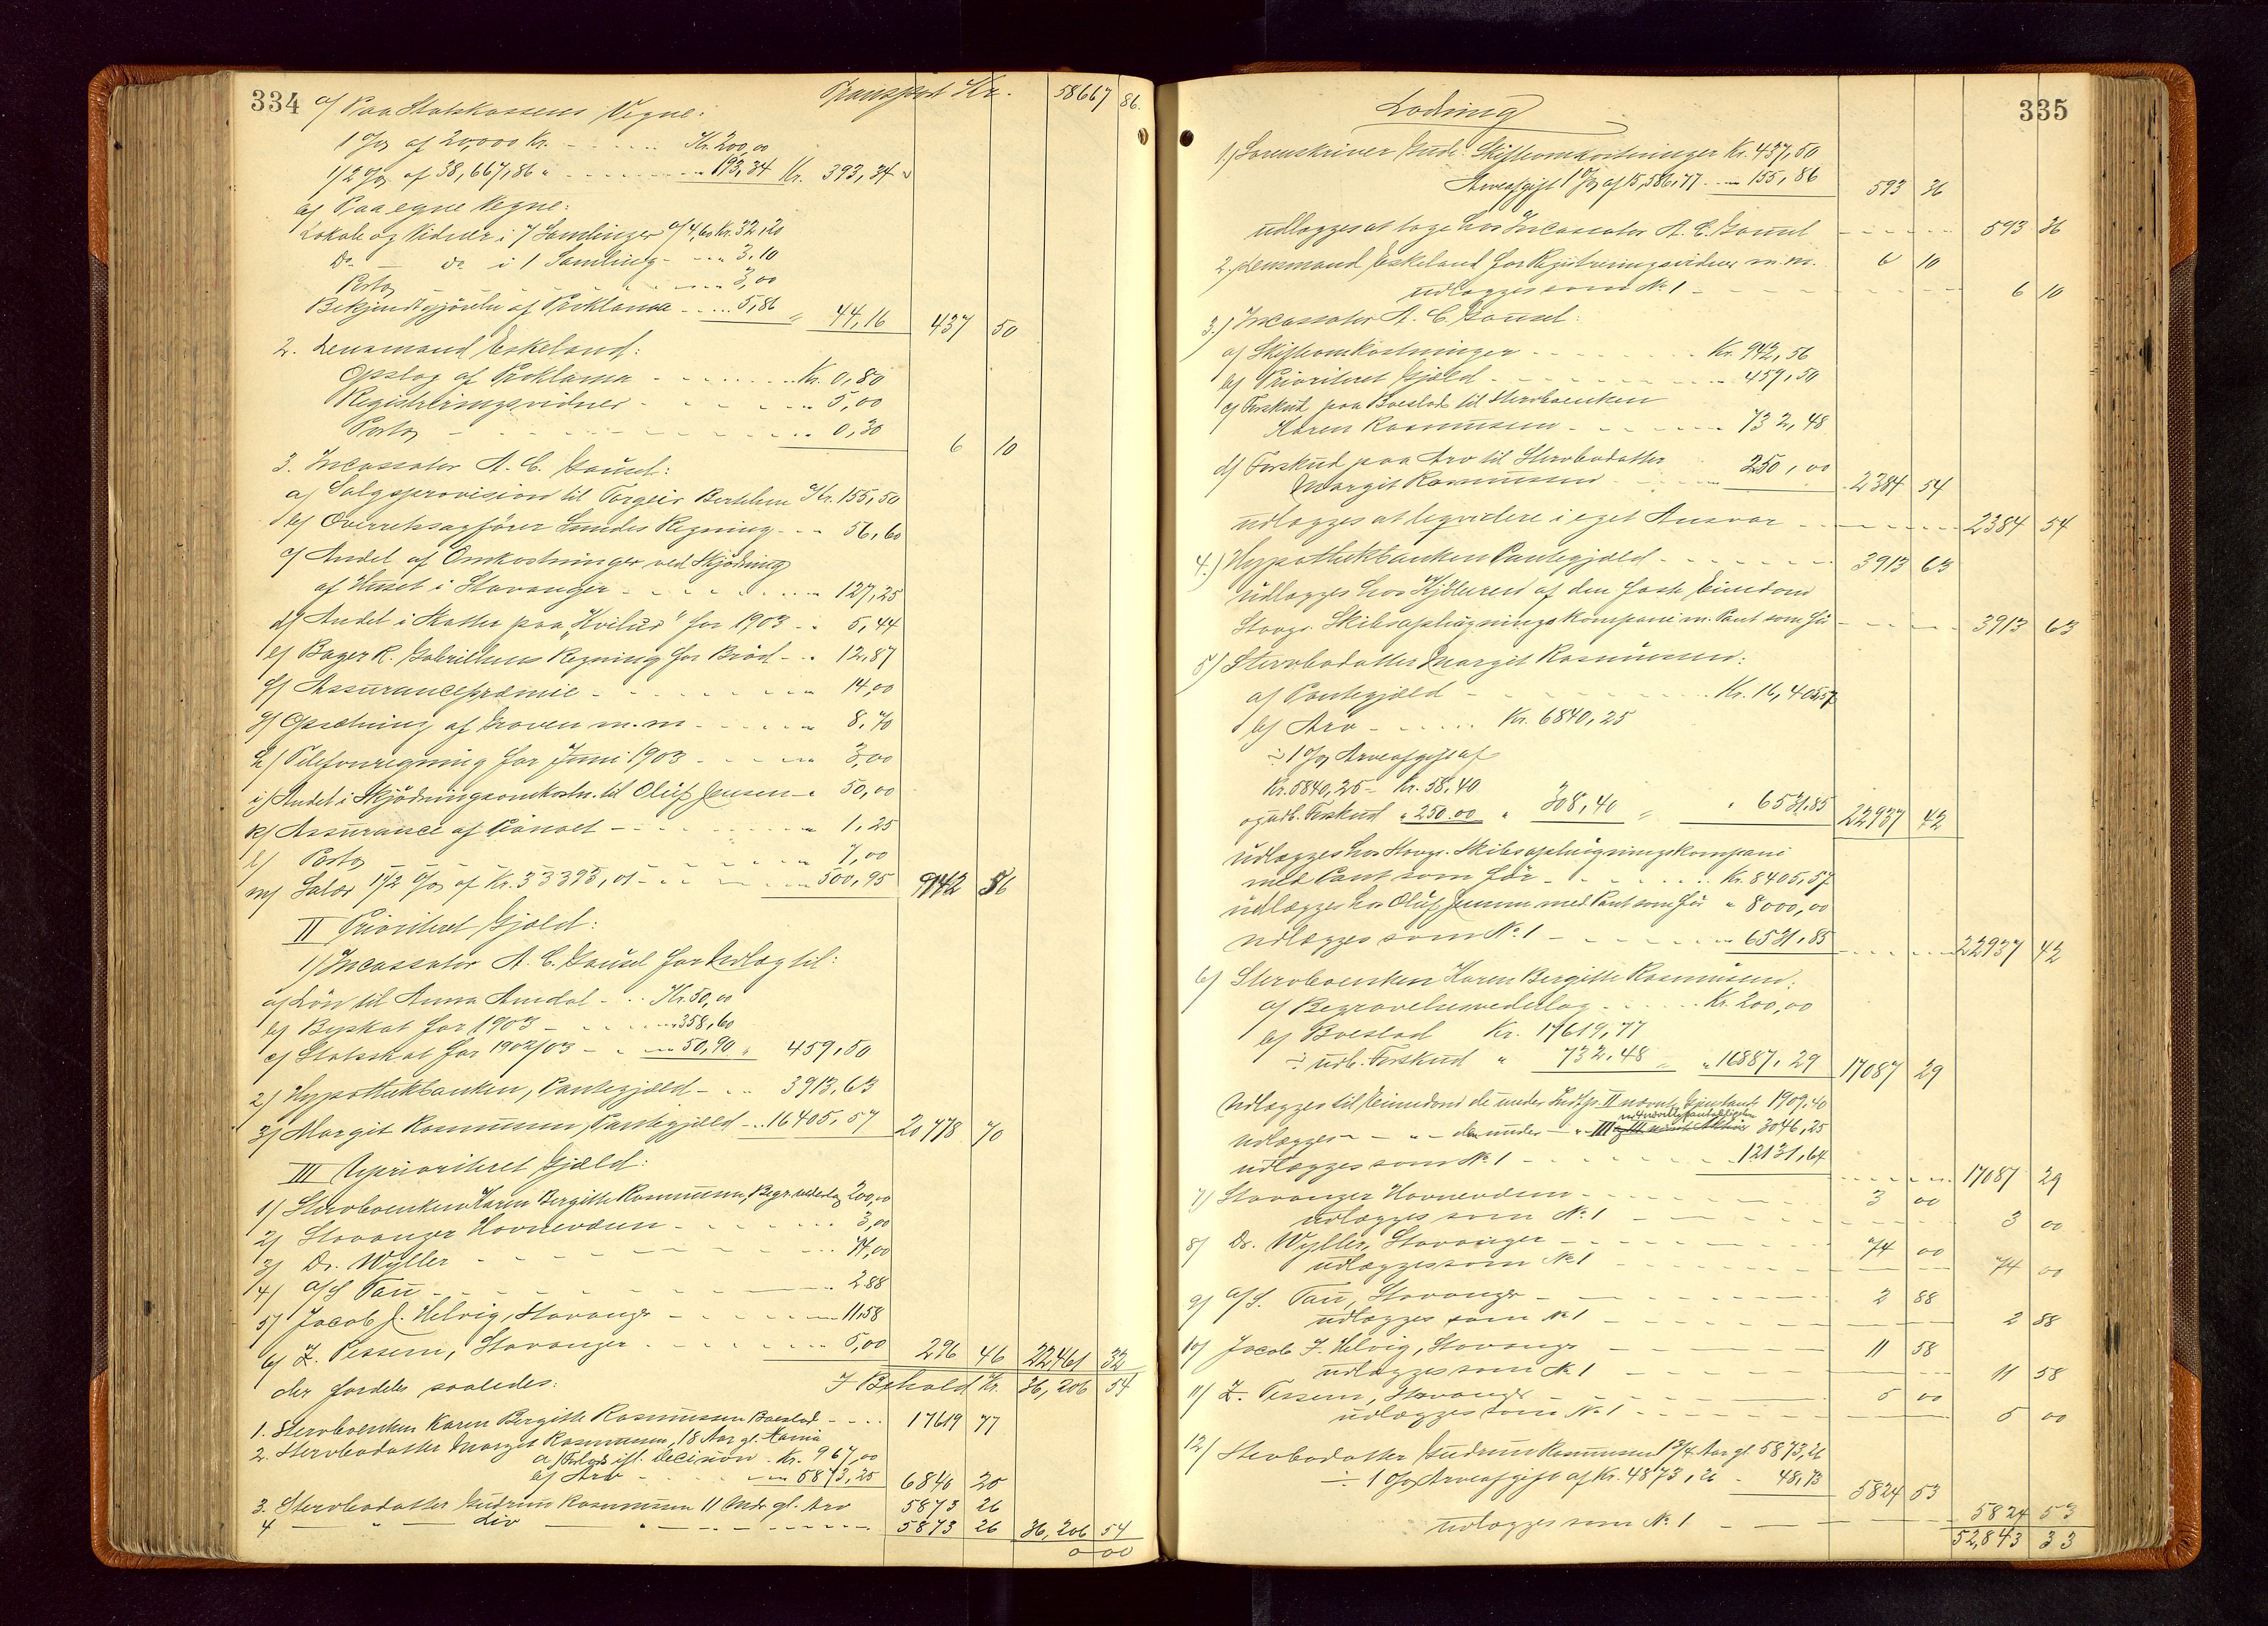 334
a/ Paa Statskassens Vegne: Transport Kr. 58667 86
1 % af 20,000 Kr. Kr. 200,00
1/2 % af 38,667,86 " 193,34 Kr. 393,34
b/ Paa egne Vegne:
Lokale og Vidner i 7 Samlinger a/ 4,60 Kr. 32,20
Do. — Do. i 1 Samling - 3,10
Porto 3,00
Bekjendtgjörelse af Proklama 5,86 " 44,16 437 50
2. Lensmand Eskeland:
Opslag af Proklama Kr. 0,80
Registreringsvidner 5,00
Porto 0,30 6 10
3. Incassator A. C. Gausel:
a/ Salgsprovision til Torgeir Bertelsen Kr. 155,50
b/ Overretssagförer Lundes Regning 56,60
c/ Andel af Omkostninger ved Skjödning
af Huset i Stavanger 127,25
d/ Andel i Skatter paa "Kvilud" for 1903 5,44
e/ Bager R. Gabrielsens Regning for Bröd 12,87
f/ Assurancepræmie 14,00
g/ Opsætning af Graven m.m 8,70
h/ Telefonregning for Juni 1903 3,00
i/ Andel i Skjödningsomkostn. til Oluf Jensen 50,00
k/ Assurance af Pianoet 1,25
l/ Porto 7,00
m/ Salær 1 1/2 % af Kr. 33393,01 500,95 942 56
II Prioriteret Gjæld:
1/ Incassator A. C. Gausel for Udlæg til:
a/ Lön til Anna Amdal Kr. 50,00
b/ Byskat for 1903 358,60
c/ Statsskat for 1902/03 50,90 " 459,50
2/ Hypothekbanken, Pantegjæld 3913,63
3/ Margit Rasmussen, Pantegjæld 16405,57 20778 70
III Uprioriteret Gjæld:
1/ Stervboenken Karen Bergitte Rasmussen, Begr.vederlag 200,00
2/ Stavanger Havnevæsen 3,00
3/ Dr. Wyller 74,00
4/ A/S Tau 2.88
5/ Jacob J. Helvig, Stavanger 11,58
6/ Z. Tessem, Stavanger 5,00 296 46 22461 32
der fordeles saaledes: I Behold Kr. 36,206 54
1. Stervboenken Karen Bergitte Rasmussen Boeslod 17619 77
2. Stervbodatter Margit Rasmussen, 18 Aar gl.
a/ Forlods ifl. Decision Kr. 967,00
b/ Arv 5873,25 6840 25
3. Stervbodatter Gudrun Rasmussen 11 Mdr. gl. Arv 5873 26
4 — " — Liv — " — 5873 26 36,206 54
0 00
335
Lodning
1/ Sorenskriver Gude: Skifteomkostninger Kr. 437,50
Arveafgift 1 % af 15,586,77 155,86 593 36
udlægges at tage hos Incassator A. C. Gausel 593 36
2. Lensmand Eskeland for Registreringsvidner m.m. 6 10
udlægges som No 1 6 10
3/ Incassator A. C. Gausel:
a/ Skifteomkostninger Kr. 942,56
b/ Prioriteret Gjæld 459,50
c/ Forskud paa Boeslod til Stervboenken
Karen Rasmussen 732,48
d/ Forskud paa Arv til Stervbodatter
Margit Rasmussen 250,00 2384 54
udlægges at liqvidere i eget Ansvar 2384 54
4/ Hypothekbanken Pantegjæld 3913 63
udlægges hos Kjöberen af den faste Eiendom
Stavgr. Skibsophugningskompani m. Pant som för 3913 63
5/ Stervbodatter Margit Rasmussen:
a/ Pantegjæld Kr. 16,405,57
b/ Arv Kr. 6840,25
÷ 1 % Arveafgift af
Kr. 5840,25 - Kr. 58,40
og udb. Forskud " 250.00 " 308,40 = " 6531,85 22937 42
udlægges hos Stavgr. Skibsophugningskompani
med Pant som för Kr. 8405,57
udlægges hos Oluf Jensen med Pant som för " 8000,00
udlægges som No 1 6531,85 22937 42
6/ Stervboenken Karen Bergitte Rasmussen:
a/ Begravelsesvederlag Kr. 200,00
b/ Boeslod Kr. 17619,77
÷ udb. Forskud " 732,48 = " 16887,29 17087 29
Udlægges til Eiendom de under Indt.p. II nævnte 1909,40
udlægges — " — de under — " — III 3046,25
udlægges som No 1 12131,64 17087 29
7/ Stavanger Havnevæsen 3 00
udlægges som No 1 3 00
8/ Dr. Wyller, Stavanger 74 00
udlægges som No 1 74 00
9/ A/S. Tau, Stavanger 2 88
udlægges som No 1 2 88
10/ Jacob J. Helvig, Stavanger 11 58
udlægges som No 1 11 58
11/ Z. Tessem, Stavanger 5 00
udlægges som No 1 5 00
12/ Stervbodatter Gudrun Rasmussen 1 3/4 Aar gl. 5873,26
÷ 1 % Arveafgift af Kr. 4873,26 48,73 5824 53
udlægges som No 1 5824 53
52,843 33